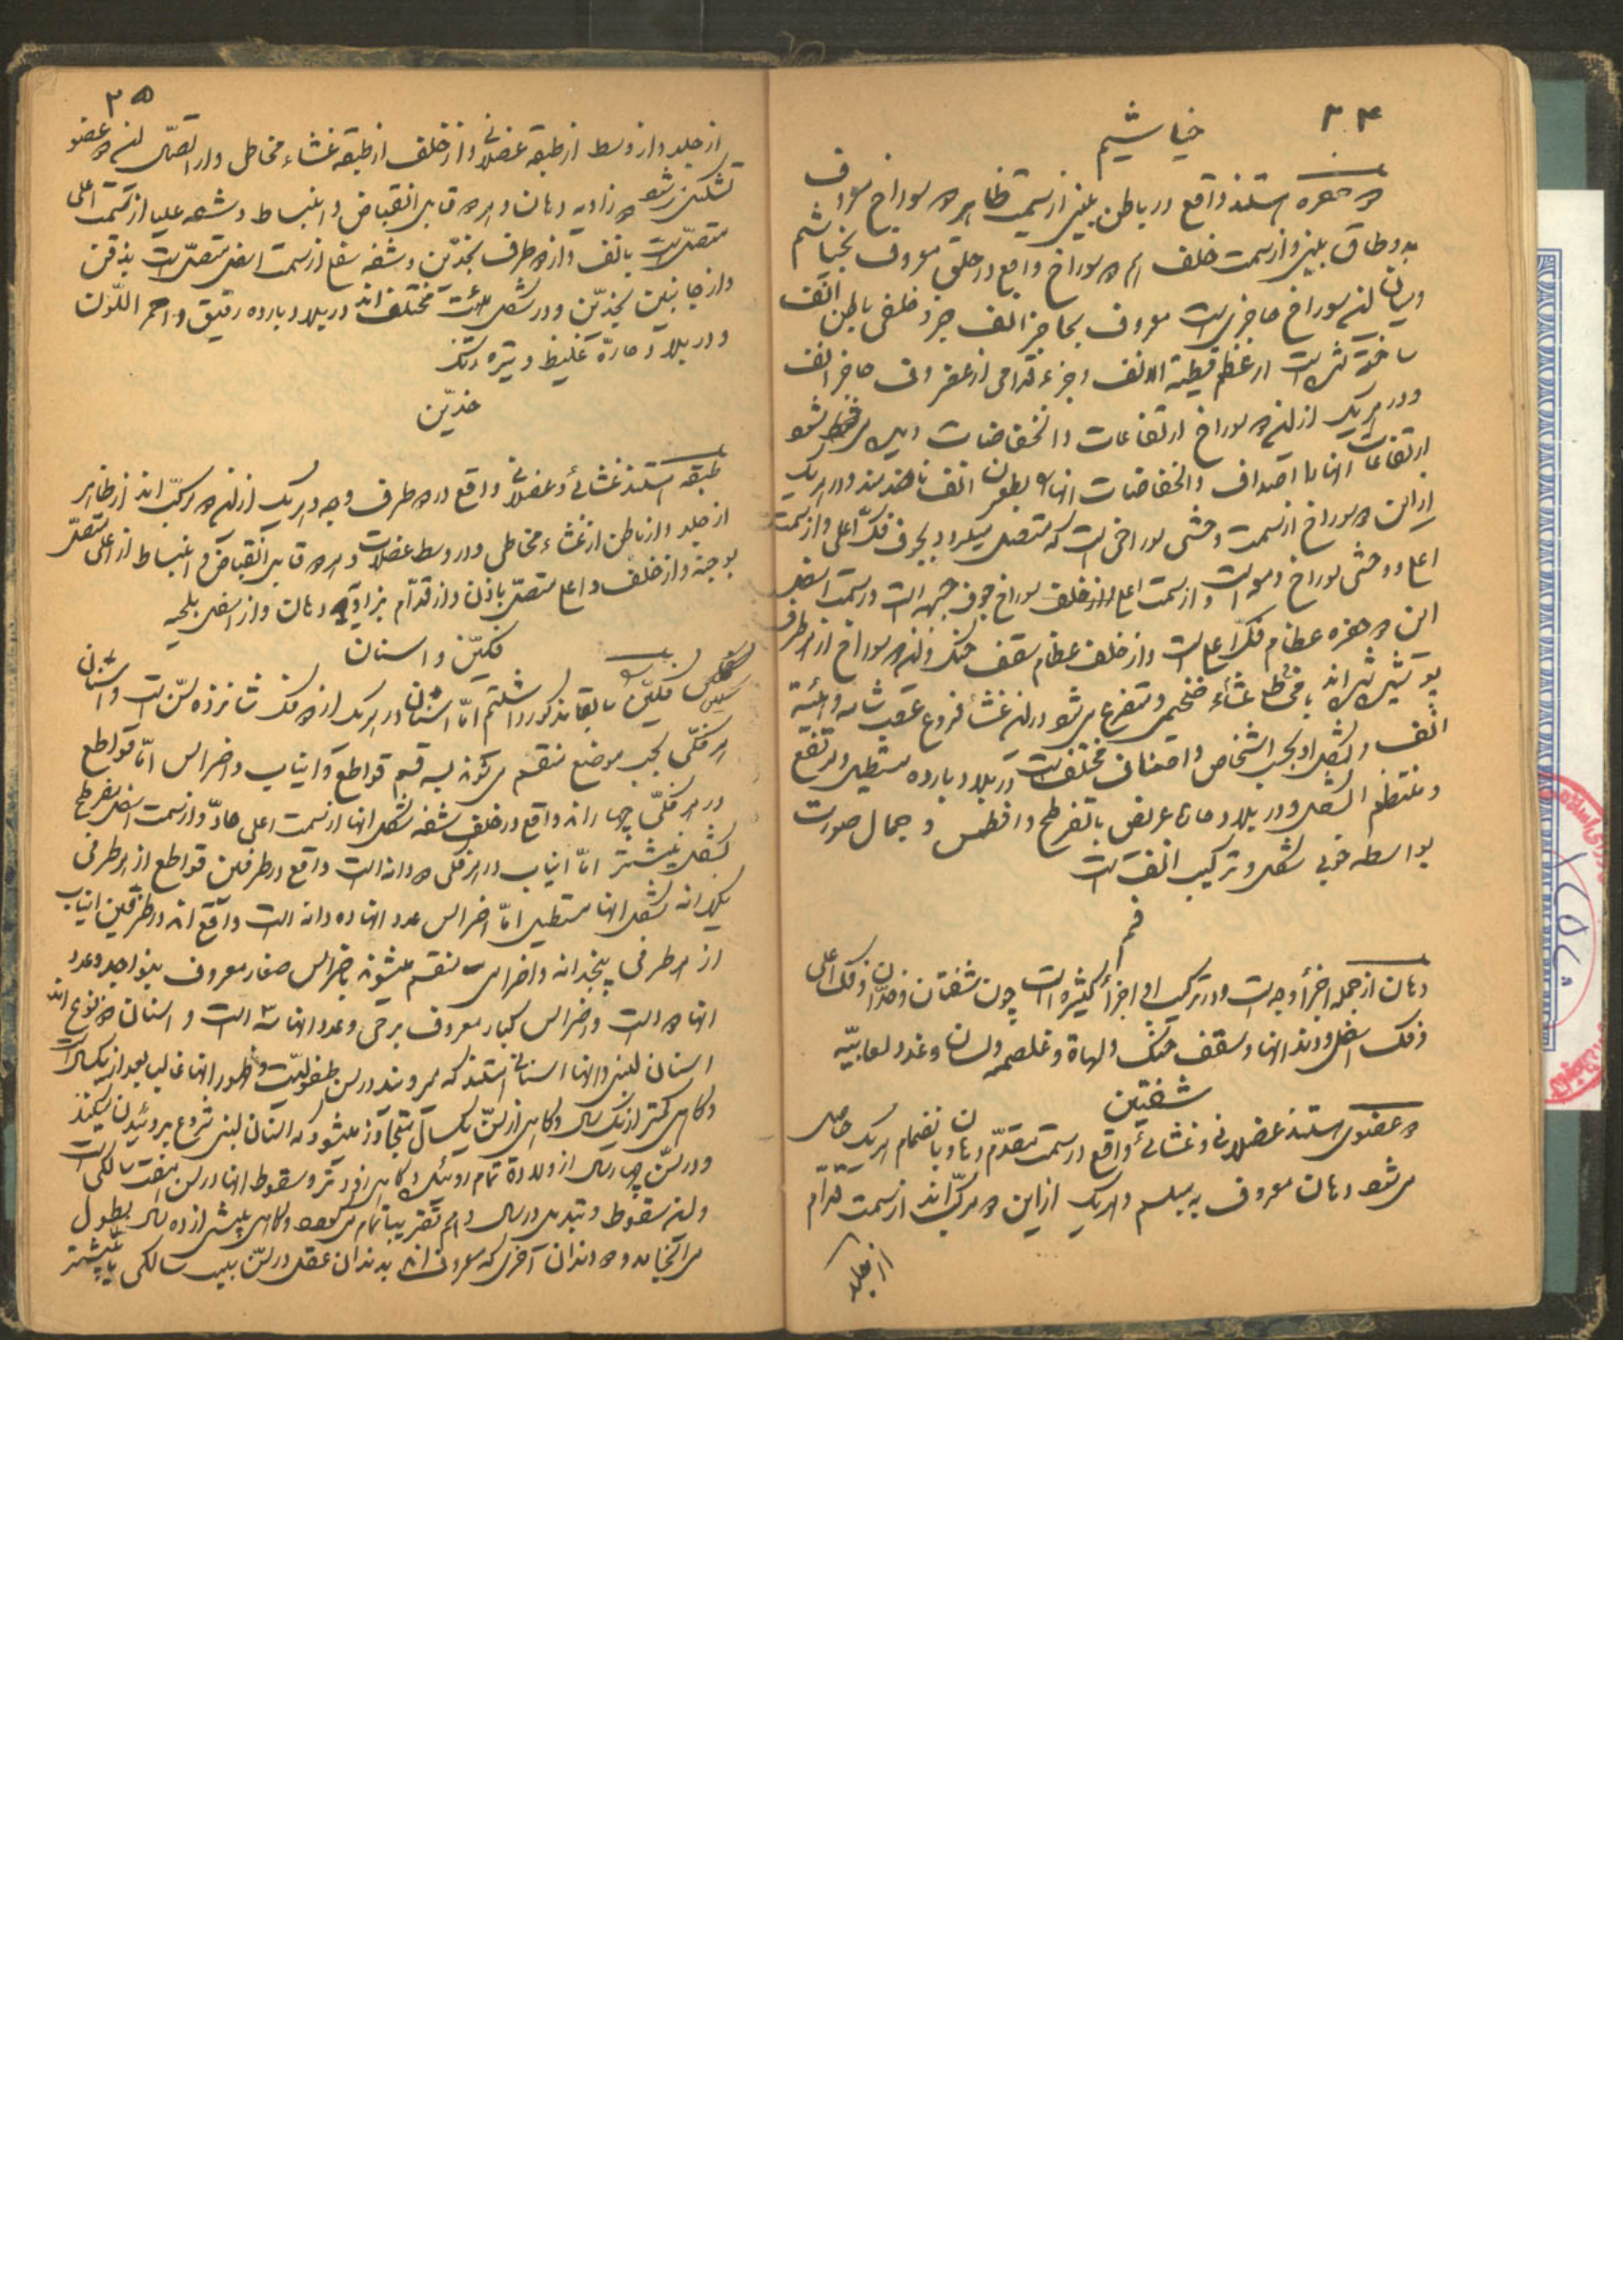 ۳۴
خیاشیم
دو حفره استند واقع در باطن بینی از سمت ظاهر دو سوراخ معروف
بدو طاق بینی و از سمت خلف هم دو سوراخ واقع در حلق معروف بخیاشیم
ومیان این سوراخ حاجزی است معروف بحاجز انف جزو خلفی باطن انف
ساخته شده است از عظم الانف و جزء قدامی از غضروف حاجز انف
ودر هریک از این دو سوراخ ارتفاعات وانخفاضات دیده می شود
ارتفاعات انها را اصداف وانخفاضات انها را بطون انف نامند ودر هریک
از این دو سوراخ از سمت وحشی سوراخی است که متصل میگردد بجوف فک اعلی واز سمت
اعلی و وحشی سوراخ است واز سمت اعلی واز خلف سوراخ جوف جبهه است ودر سمت اسفل
این دو حفره عظام فک اعلی است واز خلف عظام سقف حنک واین دو سوراخ از هر طرف
پوشیده شده اند با غشاء مخاطی ضخیمی ومتفرع می شود در این غشاء فروع عصب شامه وابنیه
انف والشکل او بحسب اشخاص واصناف مختلف است در بلاد بارده مستطیل ومرتفع
ومنتظم الشکل ودر بلاد حاره عریض با تفرطح وافطس وجمال صورت
بواسطه خوبی شکل وترکیب انف است
فم
دهان از جمله اجزأ وجه است ودر ترکیب او اجزأ کثیره است چون شفتان وخدان وفک اعلی
وفک اسفل ودندانها وسقف حنک ولهاة وغلصمه ولسان وغدد لعابیّه
شفتین
دو عضوی استند عضلانی وغشائی واقع در سمت مقدّم دهان وبانضمام هریک حاصل
می شود دهان معروف به مبسم وهریک از این دو مرکّب اند از سمت قدّام
از جلد
۳۵
از جلد واز وسط از طبقه عضلانی واز خلف از طبقه غشاء مخاطی واز اتصال این دو عضو
تشکیل می شود دو زاویه دهان وهر دو قابل انقباض وانبساط وشفه علیا از سمت اعلی
متصل است بانف واز دو طرف بخدّین وشفه سفلی از سمت اسفل متصل است بذقن
واز جانبین بخدّین ودر شکل هیئت مختلف اند در بلاد بارده رقیق واحمر اللّون
ودر بلاد حارّه غلیظ وتیره رنگ
خدّین
طبقه استند غشائی وعضلانی واقع در دو طرف وجه وهریک از این دو مرکّب اند از ظاهر
از جلد واز باطن از غشاء مخاطی ودر وسط عضلات وهر دو قابل انقباض وانبساط از اعلی متصل
بوجنه واز خلف واعلی متصل باذن واز قدّام بزاویه دهان واز اسفل بلحیه
فکیّن واسنان
فکیّن سابقا مذکور داشتیم امّا اسنان در هریک از دو فک شانزده سنّ است واسنان
هر فکّی بحسب موضع منقسم می شوند بسه قسم قواطع وانیاب واضراس امّا قواطع
در هر فکّی چهار دانه واقع در خلف شفه شکل انها از سمت اعلی حادّ واز سمت اسفل مفرطح
بشکل نیشتر امّا انیاب در هر فکی دو دانه است واقع در طرفین قواطع از هر طرفی
یکدانه شکل انها مستطیل امّا اضراس عدد انها ده دانه است واقع اند در طرفین انیاب
از هر طرفی پنجدانه واضراس منقسم میشوند باضراس صغار معروف بنواجد وعدد
انها دو است واضراس کبار معروف برحی وعدد انها سه است واسنان دو نوع اند
اسنان لبنی وانها اسنانی استند که میرویند در سن طفولیّت وظهور انها غالبا بعد از یکسال است
وگاهی کمتر از یک سال وگاهی از سنّ یکسال متجاوز میشود که اسنان لبنی شروع بروئیدن میکند
ودر سنّ چهار سال از ولادة تمام روئیده وگاهی زودتر وسقوط انها در سن هفت سالگی است
واین سقوط وتبدیل در سال دهم تقریبا تمام می شود وگاهی بیش از ده سال بطول
می انجامد ودو دندان آخری که معروف اند بدندان عقل در سنّ بیست سالگی یا بیشتر